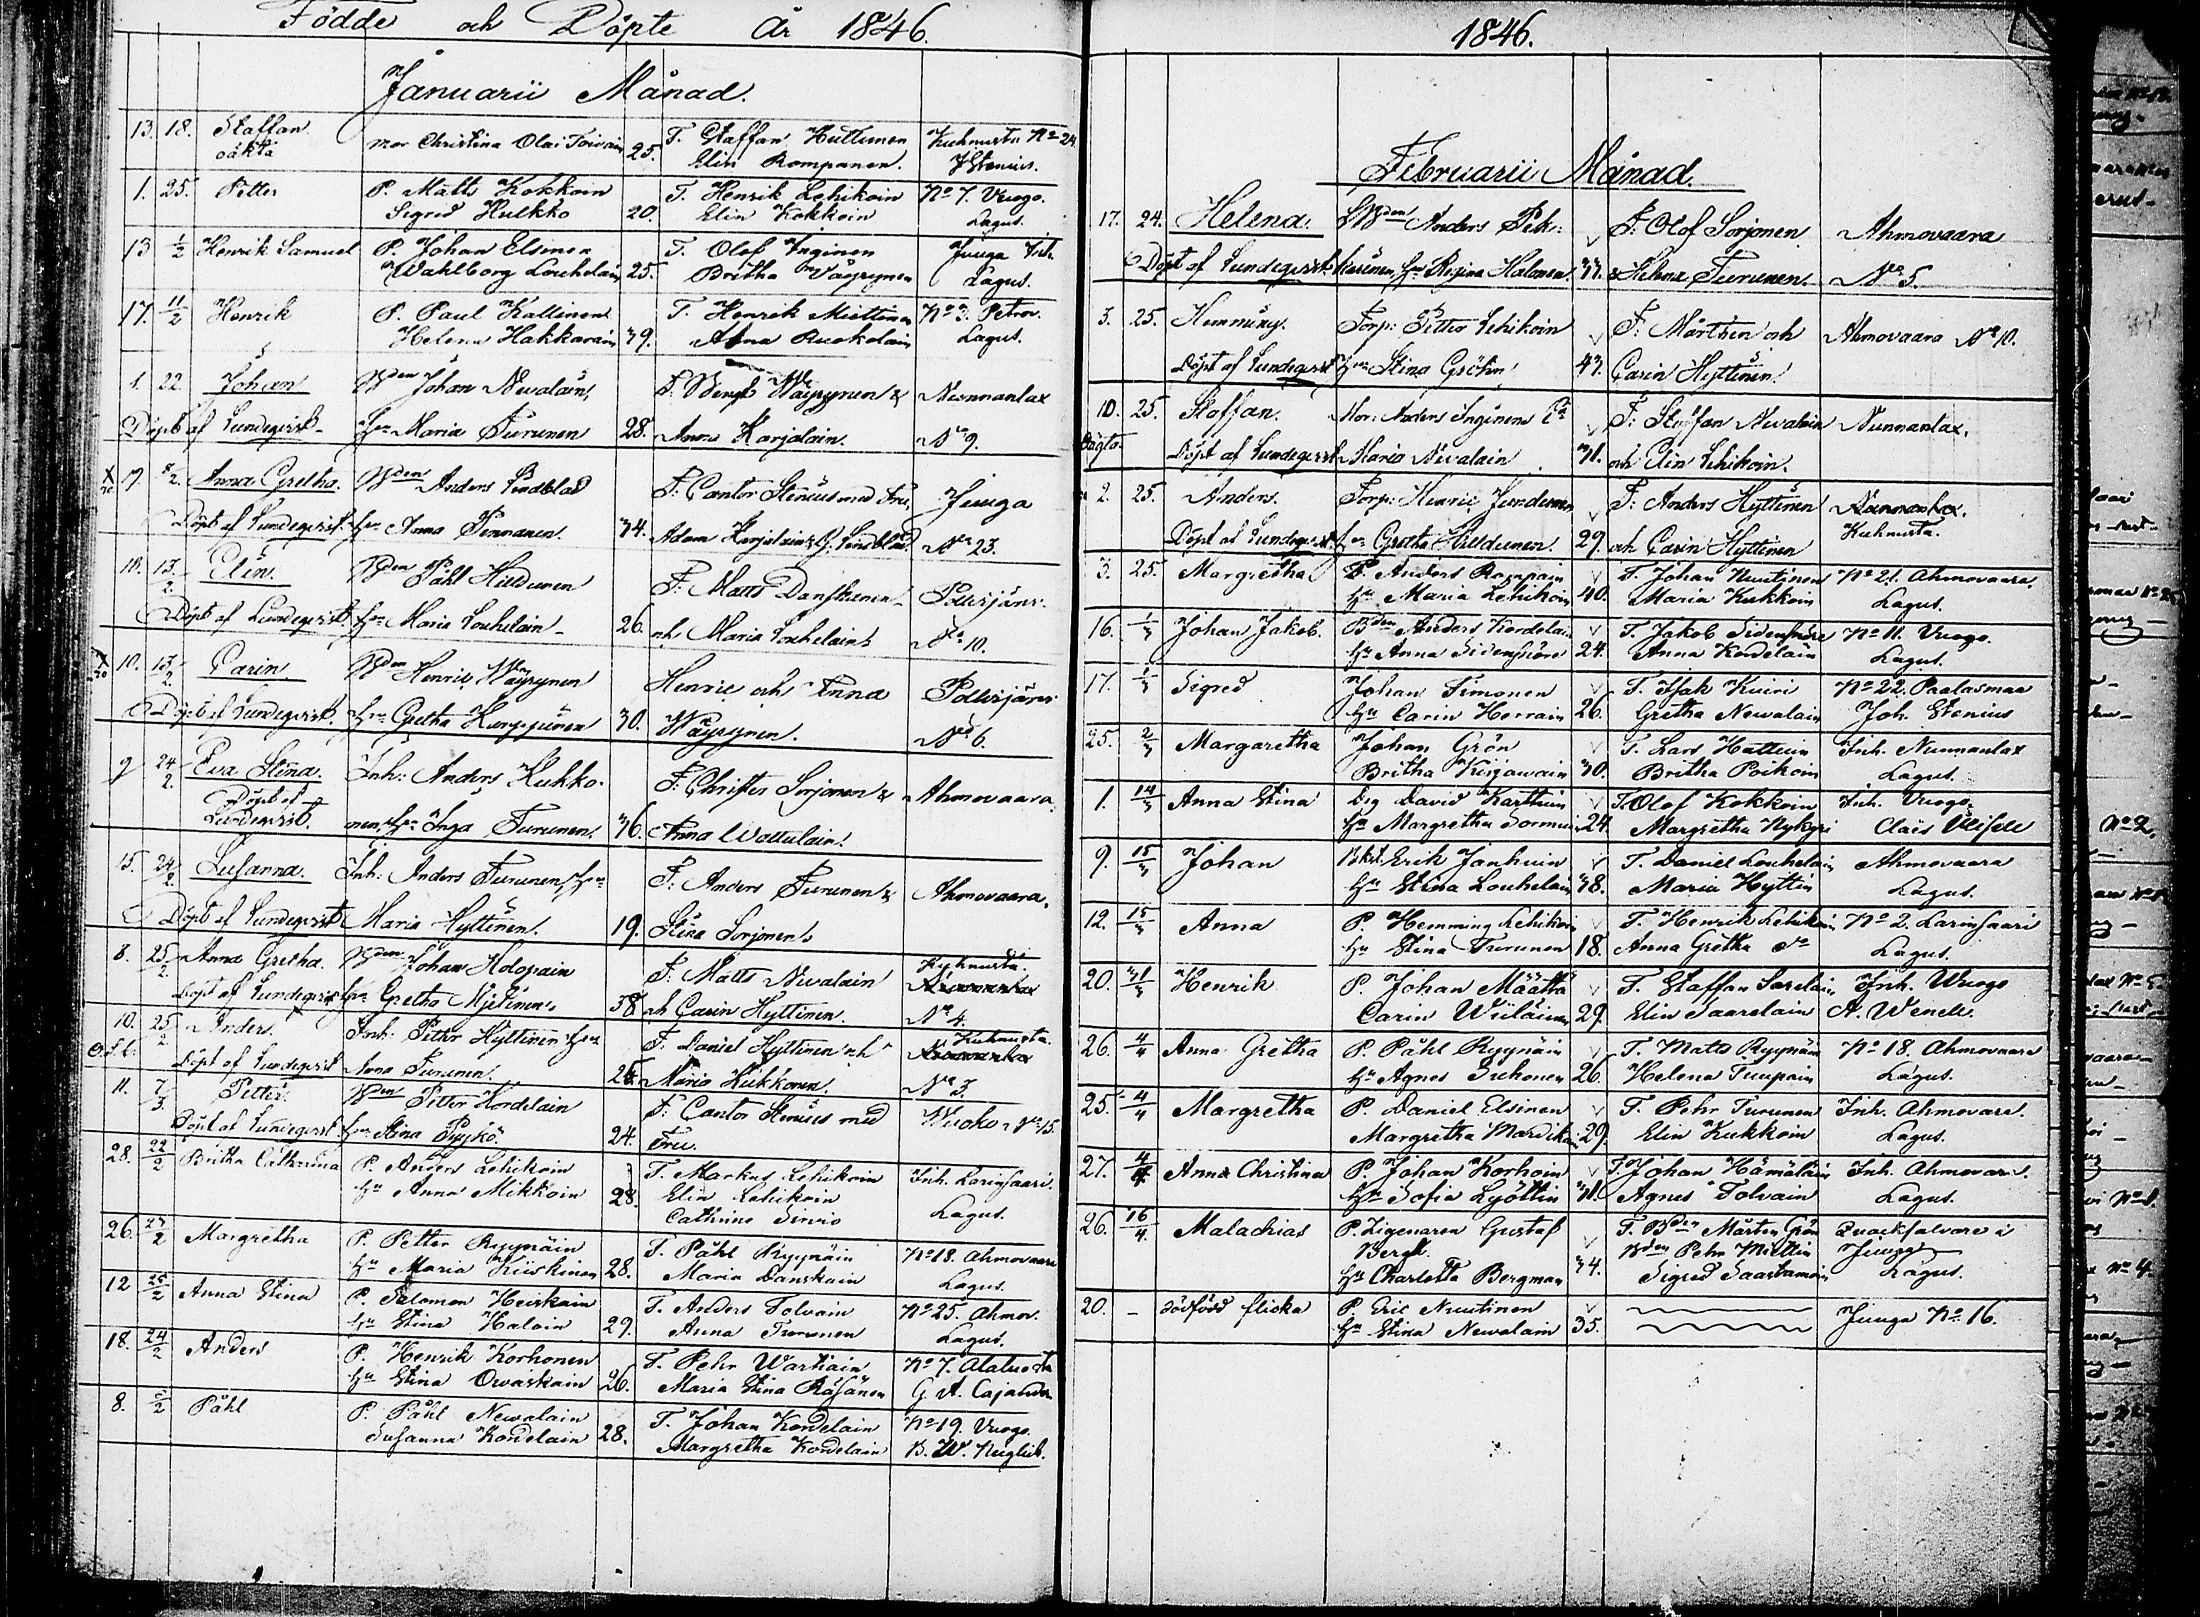 Födde och Döpte År 1846.
Januarii Månad.
13. 18. Staffan mor Christina Olai Toivain 25. T. Staffan Huttunen Kuhnusta No 24
oäkta Elin Romponen. J Stenius.
1. 25. Petter P. Matts Kokkoin T. Henrik Lehikoin No 7. Vuogo.
Sigrid Hulkko 20. Elin Kokkoin Lagus.
13 1/2 Henrik Samuel P. Johan Elsinen T. Olof Inginen Juuga
Wahlborg Louhelain 25. Britha Väyrynen Lagus.
17. 11/2 Henrik P. Paul Kallinen T. Henrik Miettinen No 3. Petrov.
Helena Hakkarain 39. Anna Ruokolain Lagus.
1. 22 Johan Bden Johan Nevalain, F. Bengt Wäyrynen & Nunnanlax
Döpt af Sundeqvist. hu Maria Turunen 28. Anna Karjalain. No 9.
7. 8/2. Anna Gretha. Bden Anders Lindblad F. Cantor Stenius med Fru, Juuga
Döpt af Sundeqvist. hu Anna Tinnanen. 34. Adam Karjalain & G. Lindblad. No 23.
10. 13/2 Elin. Bden Påhl Hiltunen F. Matts Danskanen Polvijärvi.
Döpt af Sundeqvist. hu Maria Louhelain 26. och Maria Louhelain No 10.
10. 13/2. Carin Bden Henric Wäyrynen Henric och Anna Polvijärvi
Döpt af Sundeqvist. hu Gretha Karppinen 30. Wäyrynen. No 6.
9 24/2. Eva Stina. Inh: Anders Kukko- F. Christer Sorjonen & Ahmovaara
Döpt af
Sundeqvist. nen, hu Inga Turunen. 36. Anna Wattulain.
15. 24/2 Susanna. Inh: Anders Turunen, hu F. Anders Turunen & Ahmovaara.
Döpt af Sundeqvist Maria Hyttinen. 19. Stina Sorjonen.
8. 25/2 Anna Gretha. Bden Johan Holopain F. Matts Nevalain Kuhnusta
Döpt af Sundeqvist hu Gretha Mjetinen. 38 och Carin Hyttinen. No 4.
10. 25/2 Anders. Inh. Petter Hyttinen hu F. Daniel Hyttinen och Kuhnusta.
Döpt af Sundeqvist Anna Turunen. Maria Kukkonen. No 3.
11. 7/3. Petter. Bden Petter Kordelain F. Cantor Stenius med Wuoko No 15.
Döpt af Sundeqvist. hu Stina Pyykö. 24. Fru.
28. 22/2 Britha Catharina P. Anders Lehikoin T. Markus Lehikoin Inh. Larinsaari.
hu Anna Mikkoin 28. Elin Lehikoin
Cathrina Sirvio Lagus.
26. 27/2 Margretha P. Petter Ryynäin T. Påhl Ryynäin No 18. Ahmovaari
hu Maria Kiiskinen 28. Maria Danskain Lagus.
12 25/2 Anna Stina P. Salomon Heiskain T. Anders Tolvain No 25. Ahmov.
hu Stina Haloin 29. Anna Turunen Lagus.
18. 24/2 Anders P. Henrik Korhonen T. Pehr Wartiain No 7. Alaluosta
hu Stina Ovaskain 26. Maria Stina Räsänen G. A. Cajander
8. Påhl P. Påhl Nevalain T. Johan Kordelain No 19. Vuogo.
Susanna Kordelain 28. Margretha Kordelain B. W. Neiglick.
1846.
Februarii Månad.
17. 24. Helena. Anders Pik: F. Olof Sorjonen Ahmovaara
Döpt af Sundeqvist. karinen, hu Regina Halonen 37. & Helena Turunen. No 5.
3. 25. Hemming. Torp: Petter Lehikoin F. Mårthen och Ahmovaara No 10.
Döpt af Sundeqvist hu Stina Gröhn 43. Carin Hyttinen
10. 25. Staffan. Mor: Anders Inginens F. Staffan Nevalain Nunnanlax.
Döpt af Sundeqvist Maria Nevalain 31. och Elin Lehikoin.
2. 25. Anders. Torp: Henric F. Anders Hyttinen
Döpt af Sundeqvist. hu Gretha Hiltunen. 29. och Carin Hyttinen Kuhnusta.
3. 25. Margretha P. Anders Rompain T. Johan Nuutinen No 21. Ahmovaara
hu Maria Lehikoin 40. Maria Kukkoin Lagus.
16. 1/3 Johan Jakob. Bden Anders Kordelain T. Jakob Sidensnöre No 11. Vuogo.
hu Anna Sidensnöre 24. Anna Kordelain Lagus.
17. 1/3 Sigred Johan Simonen T. Isak Kuiri No 22. Paalasmaa
hu Carin Herrain 26. Gretha Nevalain Joh. Stenius
25. 2/3 Margaretha Johan Grön T. Lars Hattuin Inh. Nunnanlax
Britha Kirjavain 30. Britha Poikoin Lagus.
1. 14/3 Anna Stina Drg David Karttuin T. Olof Kokkoin Inh. Vuogo.
hu Margretha Sormuin 24. Margretha Nykyri
9. 15/3 Johan Erik Janhuin T. Daniel Louhelain Ahmovaara
hu Stina Louhelain 38. Maria Hyttin Lagus.
12. 15/3 Anna P. Hemming Lehikoin T. Henrik Lehikoin No 2. Larinsaari
hu Stina Turunen 18. Anna Gretha do Lagus.
20. 31/3 Henrik P. Johan Määttä T. Staffan Sarelain Inh. Wuogo
Carin Wiiläinen 29. Elin Saarelain A. Wenell.
26. 4/4 Anna Gretha P. Påhl Ryynäin T. Matts Ryynäin No 18. Ahmovaara
hu Agnes Sukonen 26. Helena Tuupain Lagus.
25. 4/4 Margretha P. Daniel Elsinen T. Pehr Turunen Inh. Ahmovari.
Margretha Mardikain 29. Elin Kukkoin Lagus.
27. 4/4 Anna Christina P. Johan Korhoin T. Johan Hämäläin Inh. Ahmovari.
hu Sofia Lyöttin 31. Agnes Tolvain Lagus.
26. 16/4. Malachias P. Zigenaren Gustaf T. Bden Mårten Grön Quacksalvare i
Bergh. Bden Pehr Miettin Juuga
hu Charlotta Bergman 34. Sigred Saastamoin Lagus.
20. - dödfödd flicka P. Eric Nuutinen Juuga No 16.
hu Stina Nevalain 35.